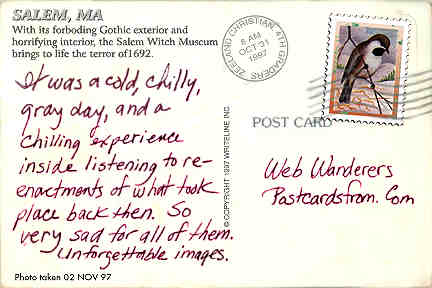 SALEM, MA
With its forboding Gothic exterior and
horrifying interior, the Salem Witch Museum
brings to life the terror of1692.
It was a cold, chilly,
gray day, and a
chilling experience
inside listening to re-
enactments of what took
place back then. So
very sad for all of them.
Unforgettable images.
Photo taken 02 NOV 97
© COPYRIGHT 1997 WRITELINE INC.
ZEELAND CHRISTIAN 4TH GRADERS
8 AM
OCT 31
1997
POST CARD
Web Wanderers
Postcardsfrom.Com